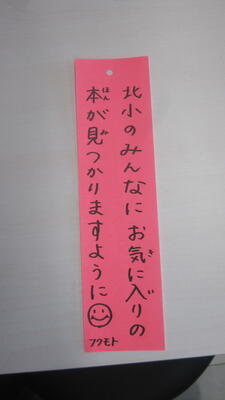 北小のみんなにお気に入りの
本が見つかりますように
フクモト